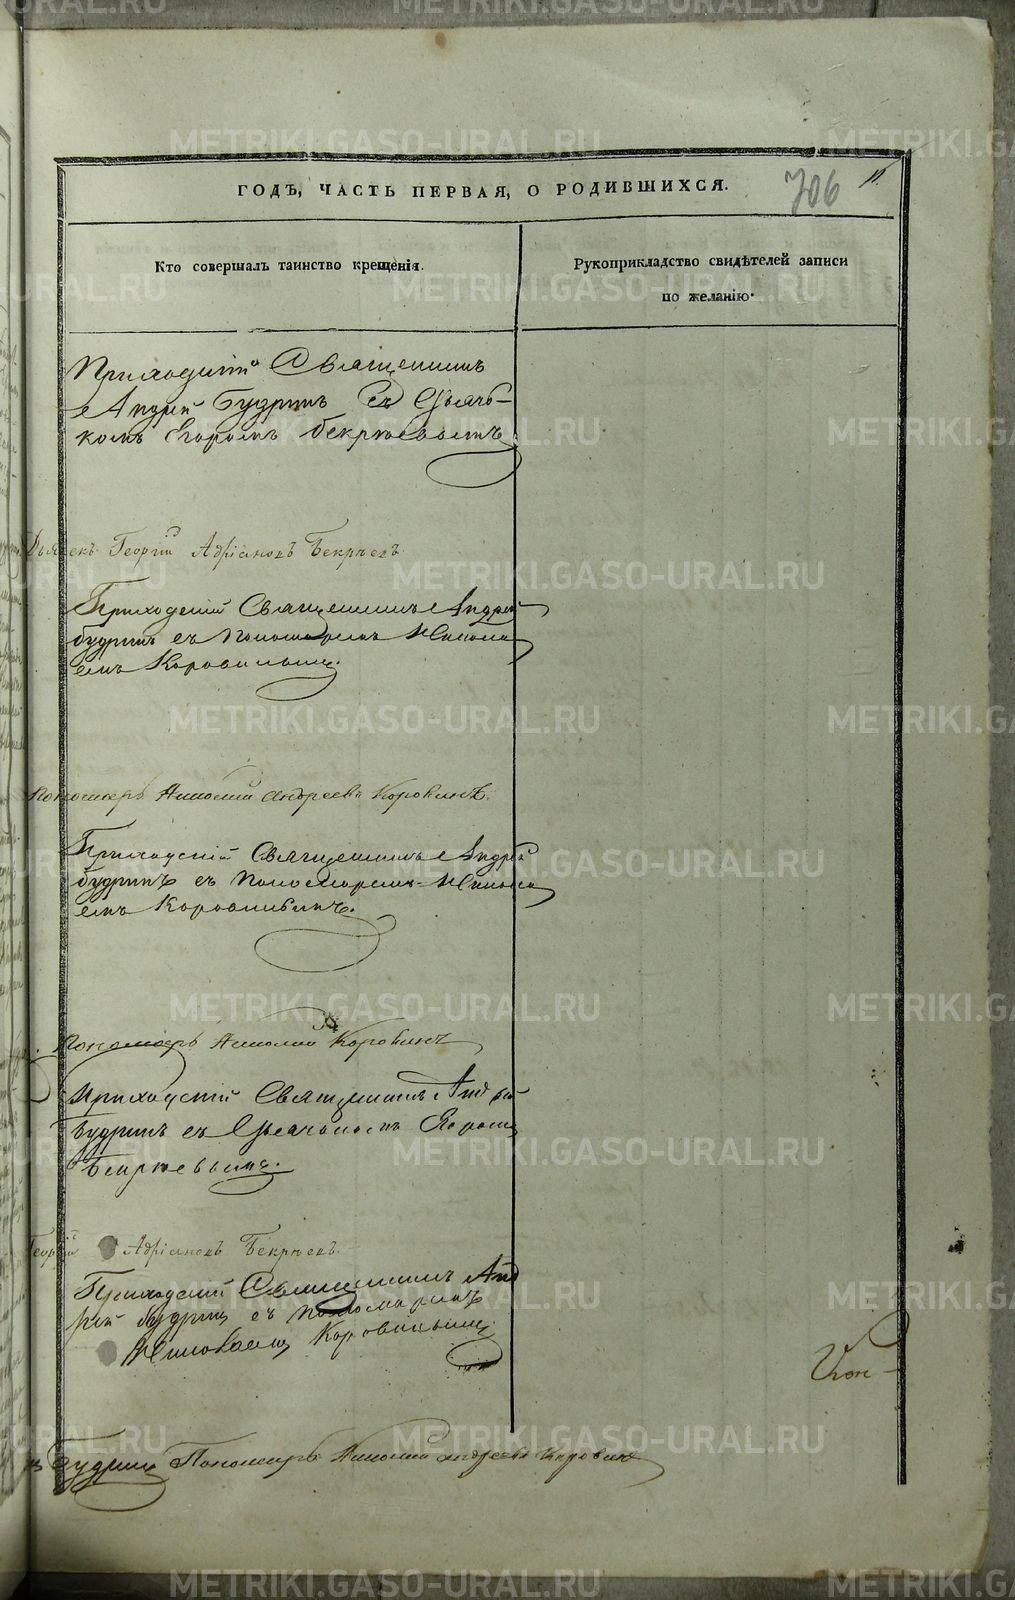 ГОДЪ, ЧАСТЬ ПЕРВАЯ, О РОДИВШИХСЯ.
706
11.
Кто совершалъ таинство крещенія.
Рукоприкладство свидѣтелей записи
по желанію.
Приходскій Священникъ
Андрей Будринъ Съ Дьяч-
комъ Егоромъ Бекрѣевымъ
Дьячекъ Георгій Адріановъ Бекрѣевъ
Приходскій Священникъ Андрей
Будринъ съ Пономаремъ
емъ Коровинымъ.
Пономарь Андреевъ Коровинъ.
Приходскій Священникъ Андрей
Будринъ съ Пономаремъ
емъ Коровинымъ.
Пономарь Коровинъ
Приходскій Священникъ Андрей
Будринъ съ Дьячкомъ Егоромъ
Бекрѣевымъ.
Георгій Адріановъ Бекрѣевъ
Приходскій Священникъ Анд
рей Будринъ съ Пономаремъ
Коровинымъ
Будринъ Пономарь Андреевъ Коровинъ
METRIKI.GASO-URAL.RU